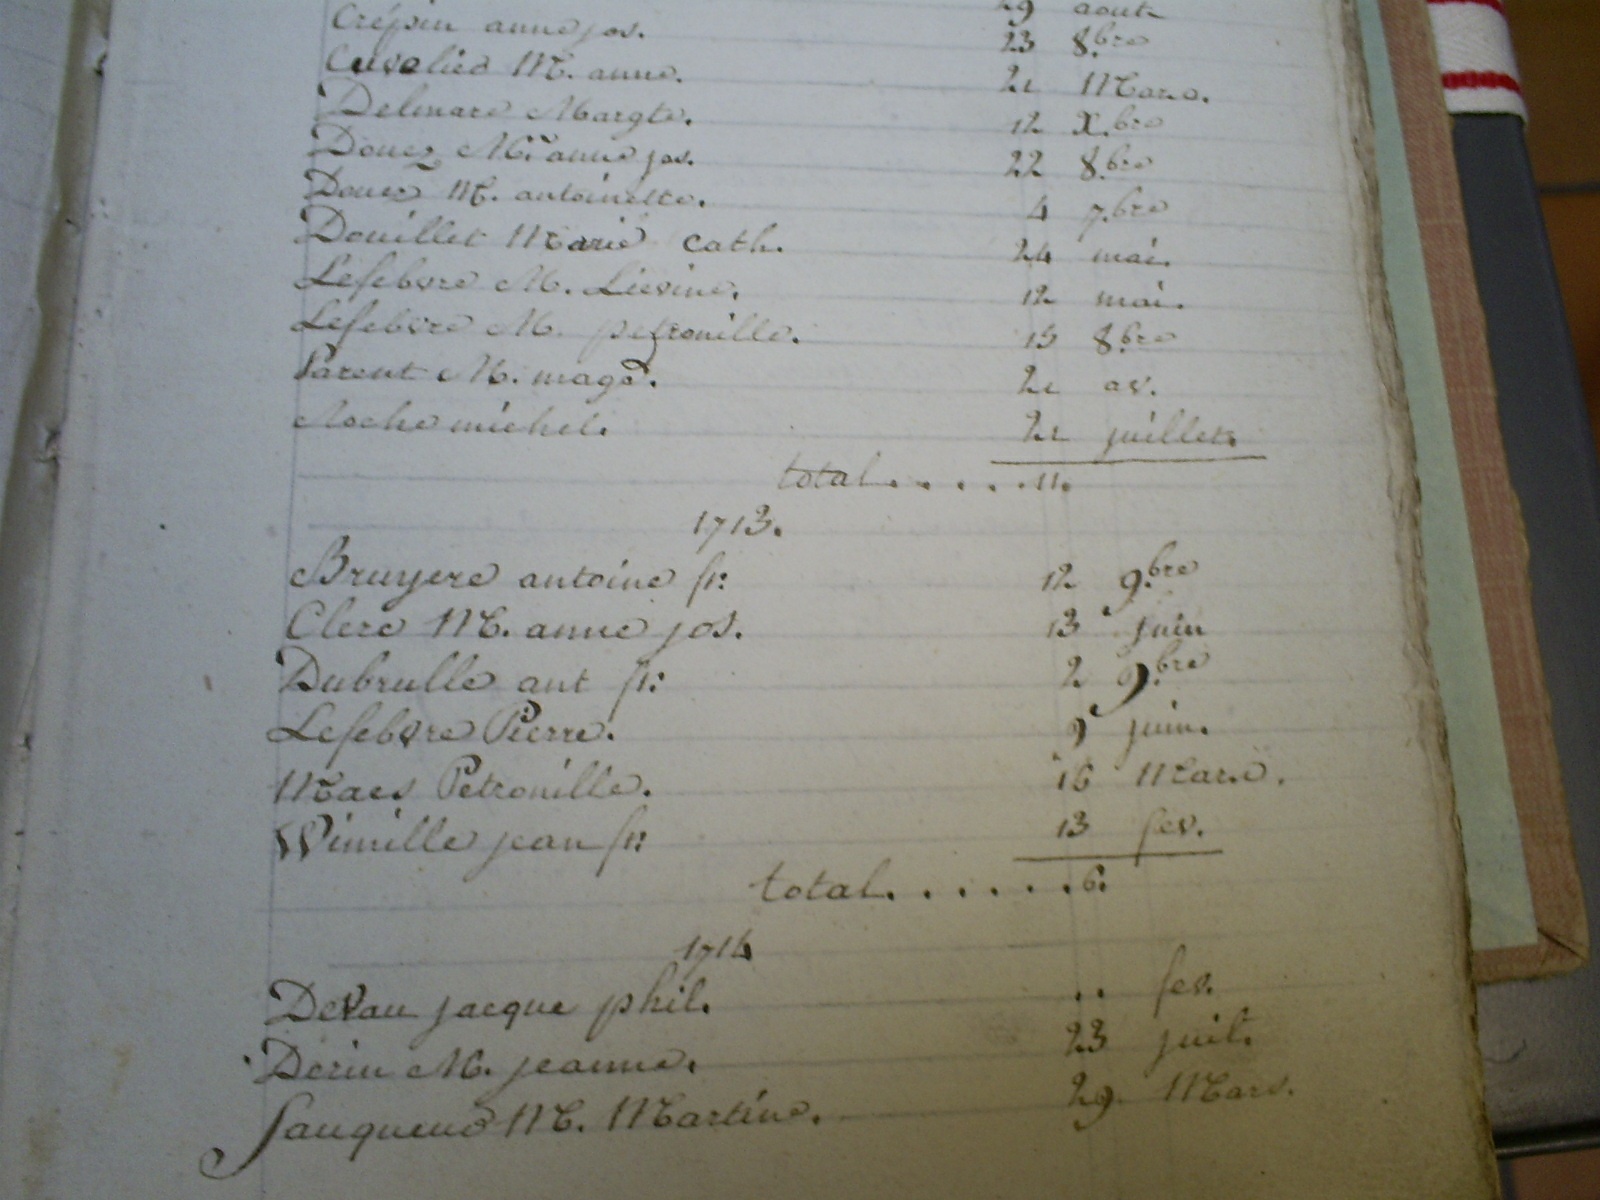 29 aout
Crépin anne jos. 23 8.bre
Cuvelier M. anne. 21 Mars.
Delmare Margte. 12 X.bre
Douez M. anne jos. 22 8.bre
Douez M. antoinette. 4 7.bre
Douillet Marie Cath. 24 mai.
Lefebvre M. Lievine. 12 mai.
Lefebvre M. petronille. 15 8.bre
Parent M. magd. 21 av.
Roche michel. 21 juillet.
total. . . . . 11.
1713.
Bruyere antoine fr: 12 9.bre
Clerc M. anne jos. 13 juin
Dubrulle ant fr: 2 9.bre
Lefebvre Pierre. 9 juin.
Maes Petronille. 16 Mars.
Wimille jean fr: 13 fev.
total. . . . . . . 6.
1714
Devau jacque phil. . . fev.
Derin M. jeanne. 23 juil.
M. Martine. 29 Mars.